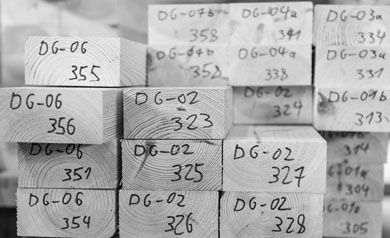 DG-07b
358
DG-04a
341
DG-03a
334
DG-06
355
DG-07b
352
DG-04a
338
DG-03a
331
DG-06
356
DG-02
323
DG-02
324
DG-01b
313
DG-06
351
DG-02
325
DG-02
327
314
304
DG-06
354
DG-02
326
DG-02
328
305